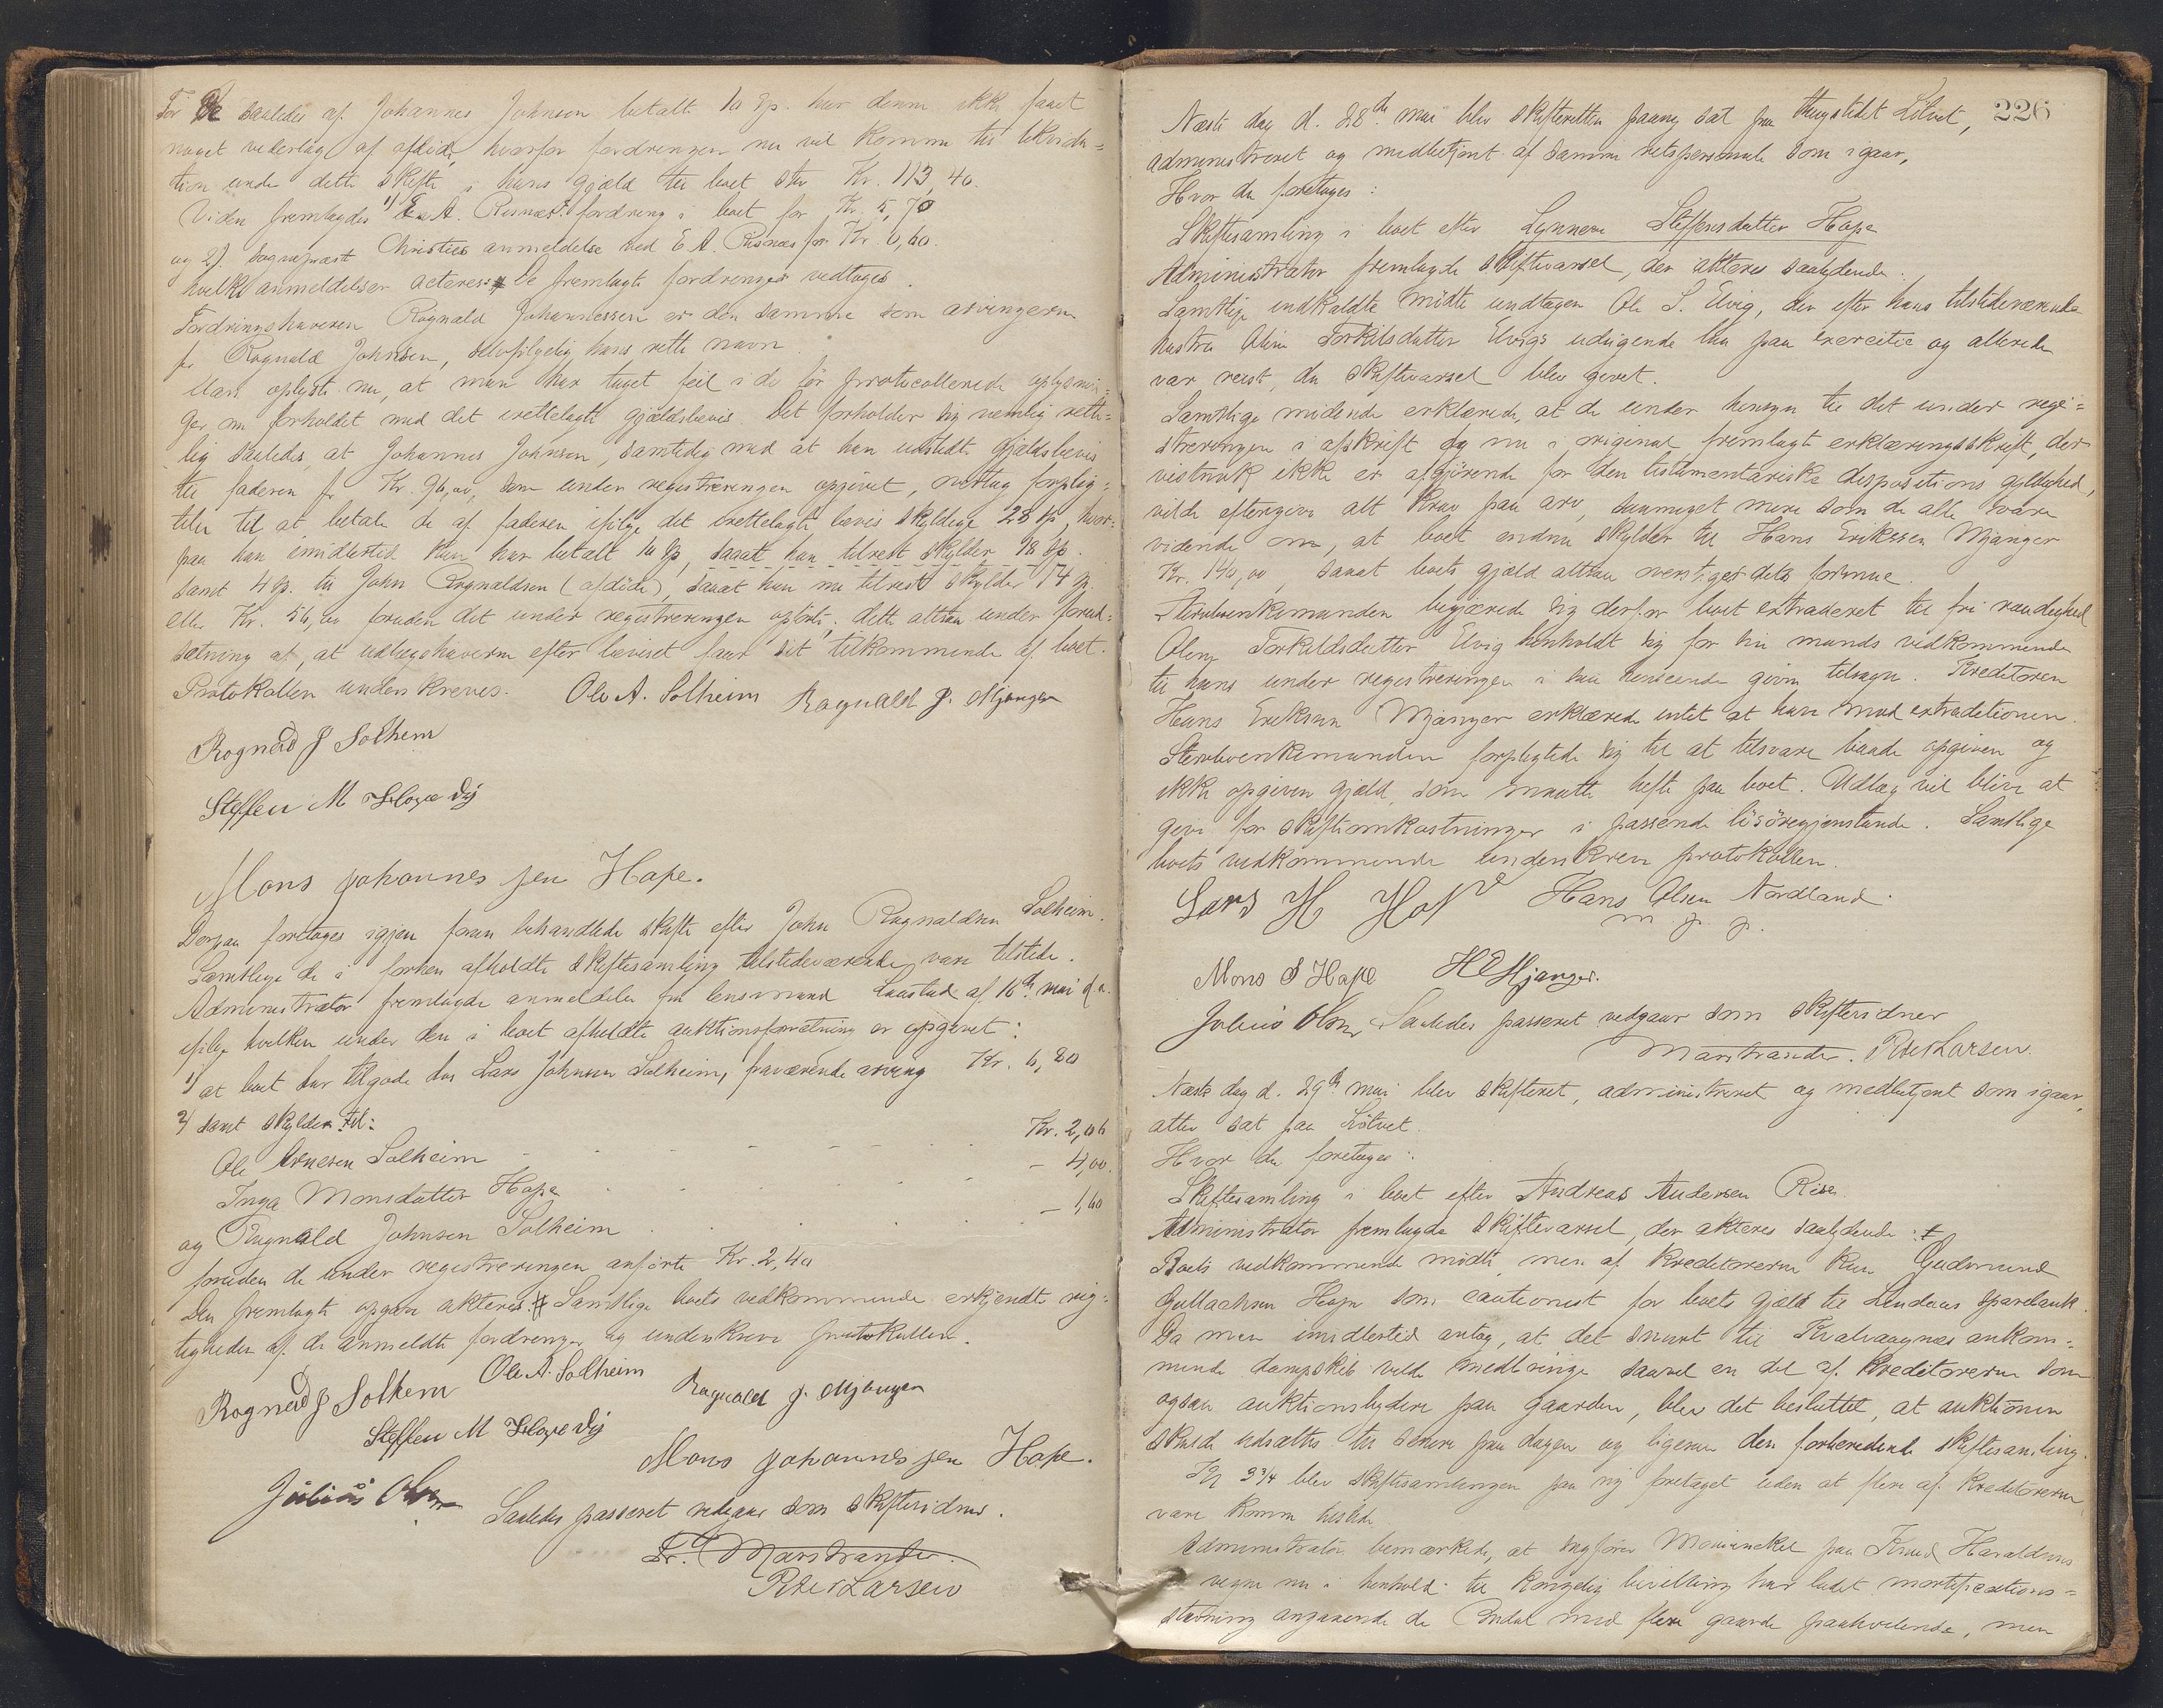 For de saaledes af Johannes Johnsen betalt 10 Sp. har denne ikke faaet
noget vederlag af afdøde, hvorfor fordringen nu vil komme til likvida-
tion under dette skifte i hans gjæld til boet stor Kr. 113,40.
Viden fremlagdes 1) E. A. Risnæs fordring i boet for Kr. 5,70
og 2). Sogneprest Christies anmeldelse ved E A Risnæs for Kr. 0,60.
hvilke anmeldelser acteres. De fremlagte fordringer vedtoges.
Fordringshaveren Rognald Johannessen er den samme som arvingerne
Rognald Johnsen, selvfølgelig hans rette navn.
Man oplyste nu, at man har taget feil i de før protocollerede oplysnin-
ger om forholdet med det irettelagte gjældsbevis. Det forholder sig nemlig rette-
lig saaledes, at Johannes Johnsen, samtidig med at han udstedte gjældsbevis
til faderen for Kr. 96,00, som under registreringen opgivet, overtog forplig-
telse til at betale de af faderen ifølge det irettelagte bevis skyldige 28 sp, hvor-
paa han imidlertid kun har betalt 10 sp, saaat han tilrest skylder 18 sp.
samt 4 sp. til John Rognaldsen (afdøde), saaat han nu tilrest skylder 14 sp.
eller Kr. 56,00 foruden det under registreringen opførte; dette altsaa under forud-
sætning af, at udlægshaverne efter beviset faar sit tilkommende af boet.
Protokollen underskreves. Ole A. Solheim Ragnald J. Mjanger
Rognald J Solhem
Steffen M Hope Vij
Mons Johannes sen Hope.
Derpaa foretoges igjen foran behandlede skifte efter John Rognaldsen Solheim.
Samtlige de i forhen afholdte skiftesamling tilstedeværende vare tilstede.
Administrator fremlagde anmeldelse fra lensmand Laastad af 16de mai d. a.
ifølge hvilken under den i boet afholdte auktionsforretning er opgivet:
1) at boet har tilgode hos Lars Johnsen Solheim, fraværende arving Kr. 6,80
2) samt skylder til:
Ole Arnesen Solheim - Kr. 2,06
Inga Monsdatter Hope - 4,00.
og Rognald Johnsen Solheim - 1,60
foruden de under registreringen anførte Kr. 2,40
Den fremlagte opgave akteres. Samtlige boets vedkommende erkjendte rig-
tigheden af de anmeldte fordringer og underskreve protokollen.
Rognald J Solhem Ole A. Solheim Ragnald J. Mjanger
Steffen M Hope Vij
Mons Johannes sen Hope.
Julius Olsen Saaledes passeret vedgaar som skiftevidner.
Fr. Marstrander.
Peter Larsen
226
Næste dag d. 28de mai blev skifteretten paany sat paa thingstedet Lötvet,
administreret og medbetjent af samme retspersonale som igaar,
Hvor da foretoges:
Skiftesamling i boet efter Synneve Steffensdatter Hope
Administrator fremlagde skiftevarsel, der akteres saalydende.
Samtlige indkaldte mödte undtagen Ole S. Elvig, der efter hans tilstedeværende
hustru Oline Torkilsdatter Elvigs udsigende laa paa exercitie og allerede
var reist, da skiftevarsel blev givet.
Samtlige mödende erklærede, at de under hensyn til det under regi-
streringen i afskrift og nu i original fremlagt erklæringsskrift, der
vistnok ikke er afgjörende for den testamentariske dispositions gyldighed,
vilde eftergive alt krav paa arv, saameget mere som de alle vare
vidende om, at boet endnu skylder til Hans Eriksen Mjanger
Kr. 140,00, saaat boets gjæld altsaa overstiger dets formue.
Stervboenkemanden begjærede sig derfor boet extraderet til fri raadighed
Oline Torkildsdatter Elvig henholdt sig for sin mands vedkommende
til hans under registreringen i saa henseende givne tilsagn. Kreditoren
Hans Eriksen Mjanger erklærede intet at have mod extraditionen.
Stervboenkemanden forpligtede sig til at tilsvare baade opgiven og
ikke opgiven gjæld, som maatte hefte paa boet. Udlæg vil blive at
give for skifteomkostninger i passende lösöregjenstande. Samtlige
boets vedkommende underskrev protokollen.
Lars H Hope Hans Olsen Nordland.
m. p. p.
Mons S Hope HEMjanger.
Julius Olsen Saaledes passeret vedgaar som skiftevidner
Marstrander. Peter Larsen.
Næste dag d. 29de mai blev skifteret, administreret og medbetjent som igaar,
atter sat paa Lötvet.
Hvor da foretoges:
Skiftesamling i boet efter Andreas Andersen Risa.
Administrator fremlagde skiftevarsel, der akteres saalydende:
Boets vedkommende mödte, men af kreditorerne kun Gudmund
Gullachsen Hope som cautionist for boets gjæld til Lindaas Sparebank.
Da man imidlertid antog, at det snart til Kvalvaagnæs ankom-
mende dampskib vilde medbringe saavel en del af kreditorerne som
ogsaa auktionsbydere paa gaarden, blev det besluttet, at auktionen
skulde udsættes til senere paa dagen og ligesaa den forberedende skiftesamling.
Kl 3 3/4 blev skiftesamlingen paa ny foretaget uden at flere af kreditorerne
vare komne tilstede.
Administrator bemærkede, at sagfører Mowinckel paa Knud Haraldsens
vegne nu i henhold til kongelig bevilling har ladet mortifications-
stævning angaaende de Indal med flere gaarde paahvilende, men